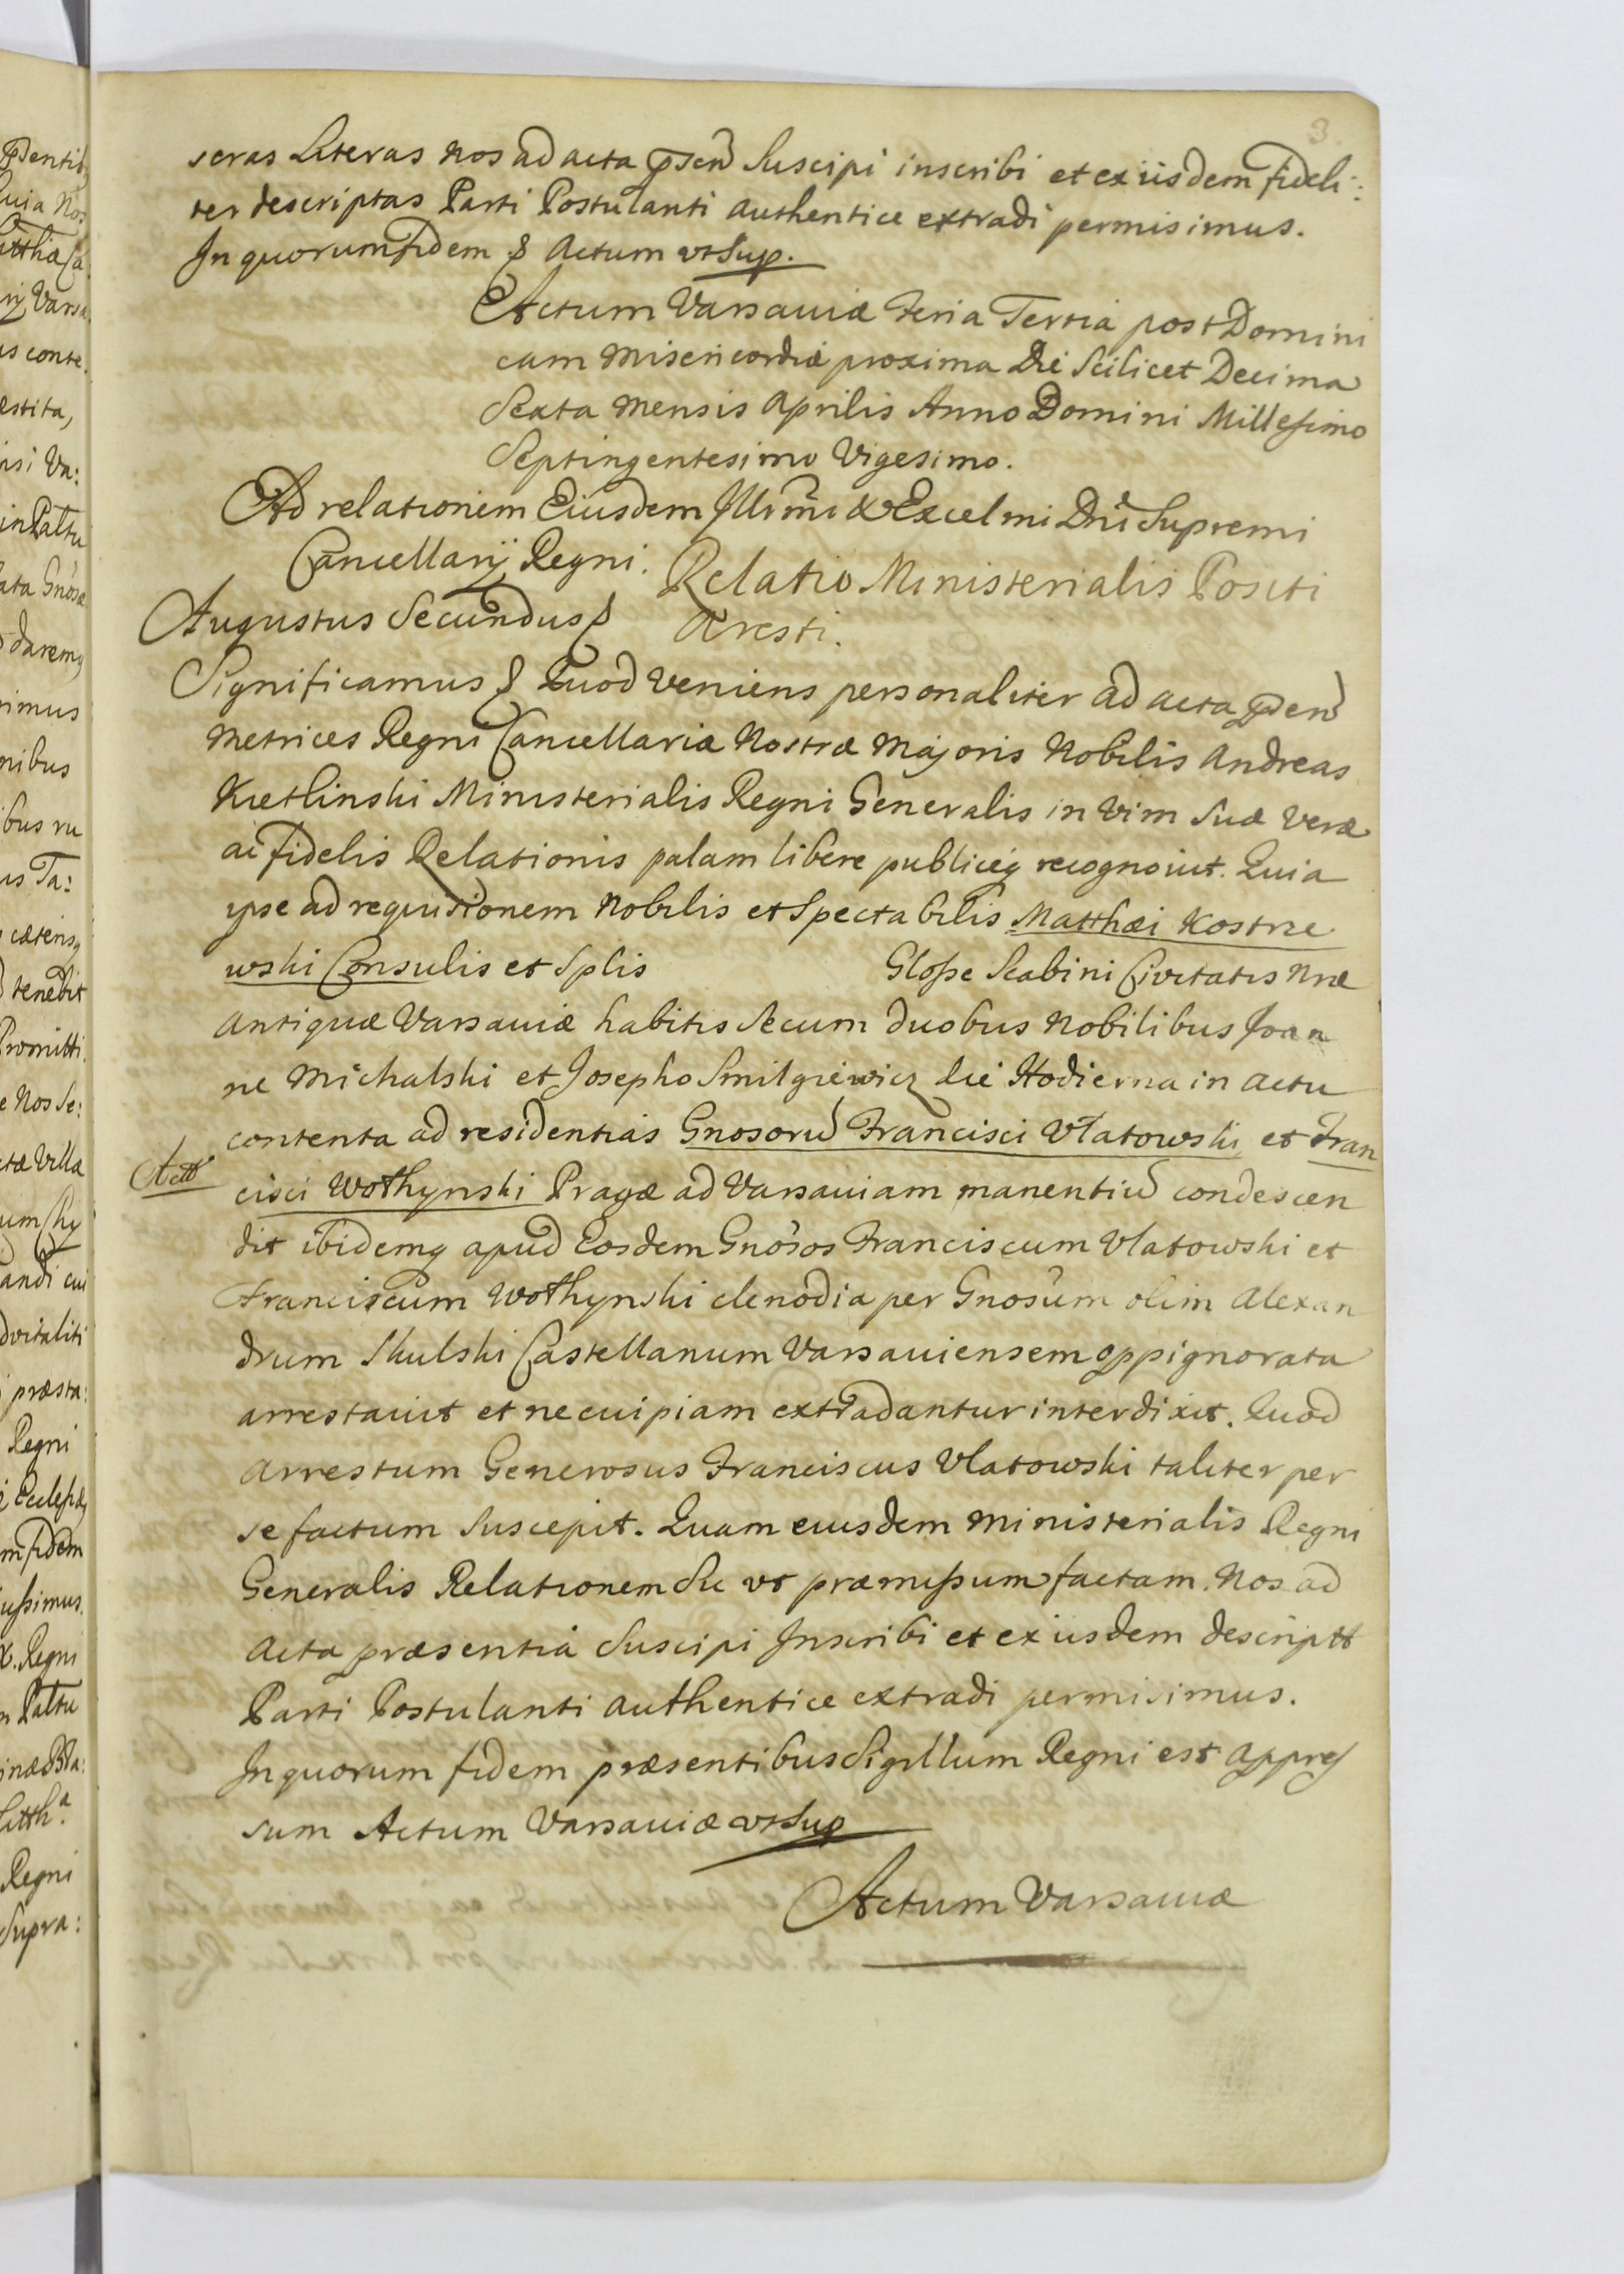 3
seras Literas nos ad acta pscn̄ Suscipi inscribi et ex iisdem fideli:
ter descriptas Parti Postulanti authentice extradi permisimus.
In quorum fidem & Actum vt Sup.
Actum Varsaviæ Feria Tertia post Domini
cam Misericordiæ proxima Die Scilicet Decima
Sexta mensis Aprilis Anno Domini Millesimo
Septingentesimo Vigesimo.
Ad relationem Eiusdem Illrmi & Excelmi Dni Supremi
Cancellarij Regni.
Relatio Ministerialis Positi
Aresti.
Augustus Secundus &
Significamus & Quod veniens personaliter ad acta pden̄
Metrices Regni Cancellariæ Nostræ Majoris Nobilis Andreas
Kietlinski Ministerialis Regni Generalis in vim Suæ veræ
ac fidelis Relationis palam libere publiceq recognovit. Quia
ipse ad requisitionem Nobilis et Spectabilis Matthæi Kostrze
wski Consulis et Splis Glosse Scabini Civitatis Nræ
Antiquæ Varsaviæ habitis Secum duobus Nobilibus Joan
ne Michalski et Josepho Smilgiewicz die Hodierna in actu
contenta ad residentias Gnosorū Francisci Vlatowski et Fran
Actt
cisci Wothynski Pragæ ad Varsaviam manentiū condescen
dit ibidemq apud Eosdem Gnosos Franciscum Vlatowski et
Franciscum Wothynski clenodia per Gnosum olim Alexan
drum Skulski Castellanum Varsaviensem oppignorata
arrestavit et ne cuipiam extradantur interdixit. Quod
Arrestum Generosus Franciscus Vlatowski taliter per
se factum Suscepit. Quam eiusdem Ministerialis Regni
Generalis Relationem Sic vt præmissum factam. Nos ad
Acta præsentia Suscipi Inscribi et ex iisdem descriptt
Parti Postulanti authentice extradi permisimus.
In quorum fidem præsentibus Sigillum Regni est appres
sum Actum Varsaviæ vt Sup
Actum Varsaviæ